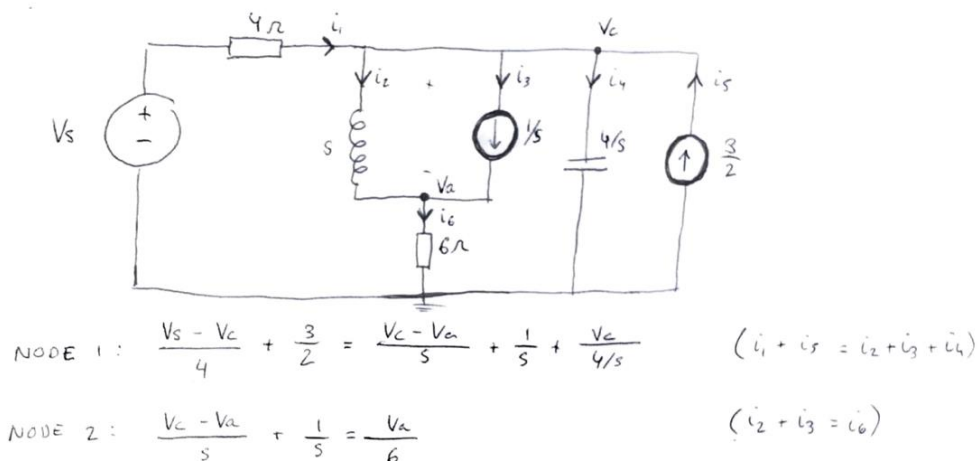 4Ω i₁ Vc
i₂ + i₃ i₄ i₅
Vs + − S 1/s 4/s 3/2
− Va
i₆
6Ω
NODE 1: (Vs − Vc)/4 + 3/2 = (Vc − Va)/S + 1/S + Vc/(4/s) (i₁ + i₅ = i₂ + i₃ + i₄)
NODE 2: (Vc − Va)/S + 1/S = Va/6 (i₂ + i₃ = i₆)